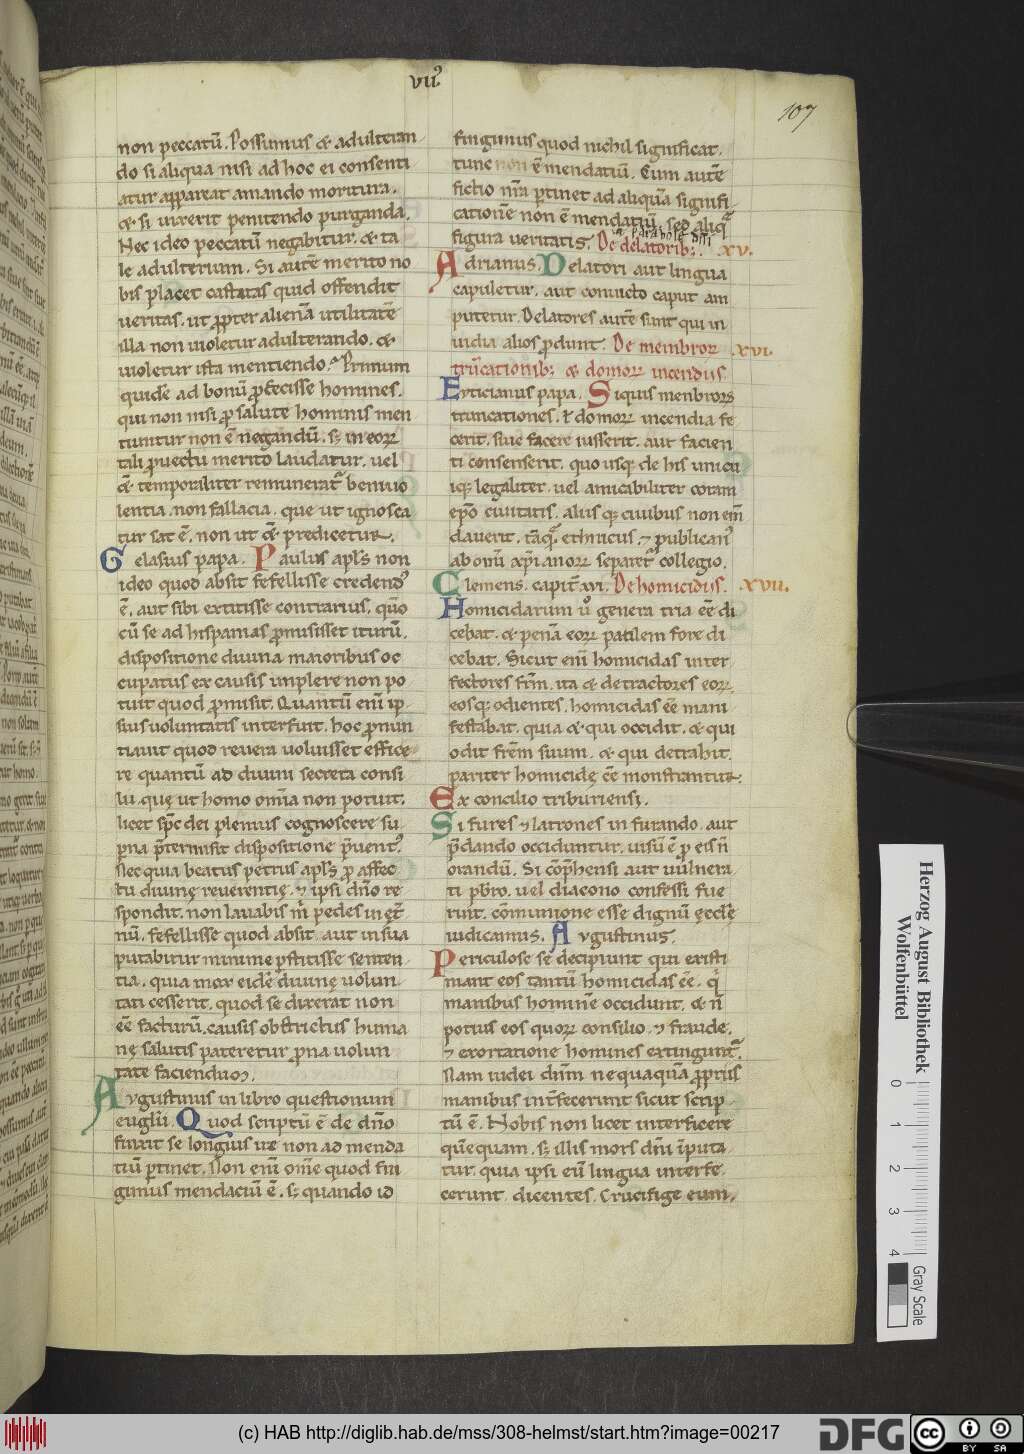 vii⁹
107
non peccatū. Possumus & adulteran
do si aliqua nisi ad hoc ei consenti
atur appareat amando moritura.
& si uixerit penitendo purganda.
Nec ideo peccatū negabitur. & ta
le adulterium. Si autē merito no
bis placet castitas quid offendit
ueritas. ut ꝓpter alienā utilitatē
illa non uioletur adulterando. &
uioletur ista mentiendo. Primum
quidē ad bonū ꝓfecisse homines.
qui non nisi ꝓ salute hominis men
tiuntur non ē negandū. sꝫ in eoꝝ
tali ꝓuectu merito laudatur. uel
& temporaliter remuneratᷓ beniuo
lentia. non fallacia. que ut ignosca
tur sat ē. non ut & predicetur.
Gelasius papa. Paulus apl's non
ideo quod absit fefellisse credend⁹
ē. aut sibi extitisse contrarius. qm̄o
cū se ad hispanias ꝓmisisset iturū.
dispositione diuina maioribus oc
cupatus ex causis implere non po
tuit quod ꝓmisit. Quantū eni ip
sius uoluntatis interfuit. hoc ꝓnun
tiauit quod reuera uoluisset effice
re quantū ad diuini secreta consi
lii. quę ut homo omīa non potuit.
licet sp̄c dei plenus cognoscere su
pna p̄termisit dispositione p̄uent⁹.
Nec quia beatus petrus apl's ꝓ affec
tu diuinę reuerentię. ⁊ ipsi dn̄o re
spondit. non lauabis m̄ pedes in ęt̄
nū. fefellisse quod absit. aut in sua
putabitur minime ꝑstitisse senten
tia. quia mox eidē diuinę uolun
tati cesserit. quod se dixerat non
eē facturū. causis obstrictus huma
nę salutis pateretur ꝓna uolun
tate faciendū.
Augustinus in libro questionum
euglii. Quod scriptū ē de dn̄o
finxit se longius ire non ad menda
tiū ꝑtinet. Non eni om̄e quod fin
gimus mendaciū ē. sꝫ quando id
fingimus quod nichil significat.
tunc non ē mendatiū. Cum autē
fictio nr̄a ꝑtinet ad aliquā signifi
cationē non ē mendatiū. sed aliqᷓ
ut parabole dn̄i
figura ueritatis. De delatoribꝫ. XV.
Adrianus. Delatori aut lingua
capuletur. aut conuicto caput am
putetur. Delatores autē sunt qui in
uidia alios ꝓdunt. De membroꝝ XVI.
trūcationibꝫ & domoꝝ incendiis
Eyticianus papa. Siquis menbroꝝ
truncationes. ł domoꝝ incendia fe
cerit. siue facere iusserit. aut facien
ti consenserit. quo usqꝫ de his unicu
iqꝫ legaliter. uel amicabiliter coram
ep̄o ciuitatis. aliis qꝫ ciuibus non em̄
dauerit. tāqᷓ ethnicus. ⁊ publican⁹
ab omī xp̄ianoꝝ separetᷓ collegio.
Clemens. capit̄ xvi. De homicidiis. XVII.
Homicidarum u̔ genera tria eē di
cebat. & penā eoꝝ parilem fore di
cebat. Sicut eni homicidas inter
fectores frm̄. ita & detractores eoꝝ.
eosqꝫ odientes. homicidas eē mani
festabat. quia & qui occidit. & qui
odit frēm suum. & qui detrahit.
pariter homicidę eē monstrantur.
Ex concilio triburiensi.
Si fures ⁊ latrones in furando. aut
p̄dando occiduntur. uisū ē ꝓ eis n̄
orandū. Si cōp̄hensi aut uulnera
ti pb̄ro. uel diacono confessi fue
rint. cōmunione esse dignū ęcclīę
iudicamus. Augustinus.
Periculose se decipiunt qui existi
mant eos tantū homicidas eē. qͥ
manibus hominē occidunt. & n̄
potius eos quoꝝ consilio. ⁊ fraude.
⁊ exortatione homines extinguntᷓ.
Nam iudei dn̄m nequaquā ꝓpriis
manibus int̄fecerunt sicut scrip
tū ē. Nobis non licet interficere
quēquam. sꝫ illis mors dn̄i īputa
tur. quia ipsi eū lingua interfe
cerunt. dicentes. Crucifige eum.
Herzog August Bibliothek
Wolfenbüttel
0 1 2 3 4
Gray Scale
(c) HAB http://diglib.hab.de/mss/308-helmst/start.htm?image=00217
DFG
cc BY SA